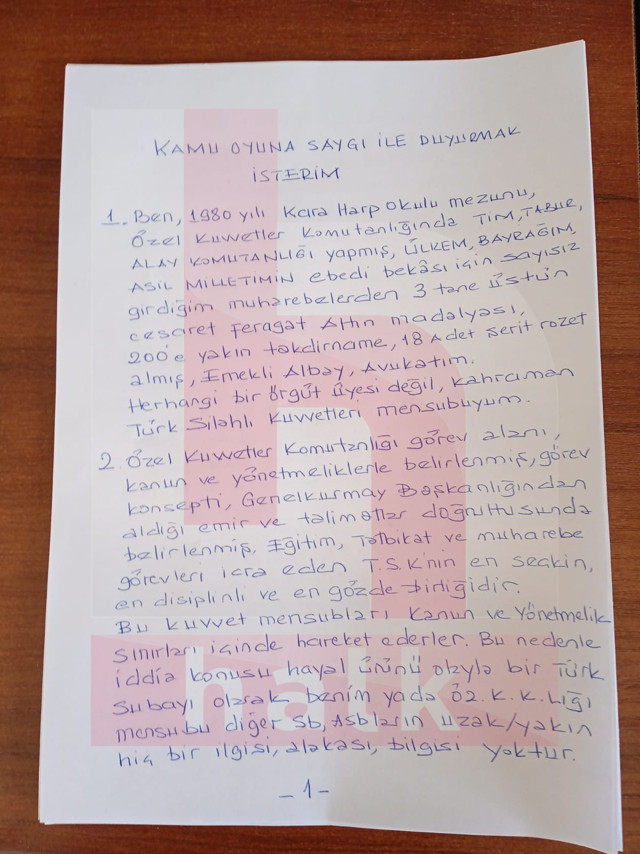 KAMU OYUNA SAYGI İLE DUYURMAK
İSTERİM
1. Ben, 1980 yılı Kara Harp Okulu mezunu,
Özel Kuvvetler Komutanlığında TİM, TABUR,
ALAY KOMUTANLIĞI yapmış, ÜLKEM, BAYRAĞIM,
ASİL MİLLETİMİN ebedi bekâsı için sayısız
girdiğim muharebelerden 3 tane üstün
cesaret feragat Altın madalyası,
200'e yakın takdirname, 18 Adet şerit rozet
almış, Emekli Albay, Avukatım.
Herhangi bir örgüt üyesi değil, kahraman
Türk Silahlı Kuvvetleri mensubuyum.
2. Özel Kuvvetler Komutanlığı görev alanı,
kanun ve yönetmeliklerle belirlenmiş, görev
konsepti, Genelkurmay Başkanlığından
aldığı emir ve talimatlar doğrultusunda
belirlenmiş, Eğitim, Tatbikat ve muharebe
görevleri icra eden T.S.K'nin en seçkin,
en disiplinli ve en gözde birliğidir.
Bu kuvvet mensubları kanun ve Yönetmelik
sınırları içinde hareket ederler. Bu nedenle
iddia konusu hayal ürünü olayla bir Türk
subayı olarak benim yada Öz. K. K. lığı
mensubu diğer Sb, Asbların uzak/yakın
hiç bir ilgisi, alakası, bilgisi yoktur.
-1-
halk